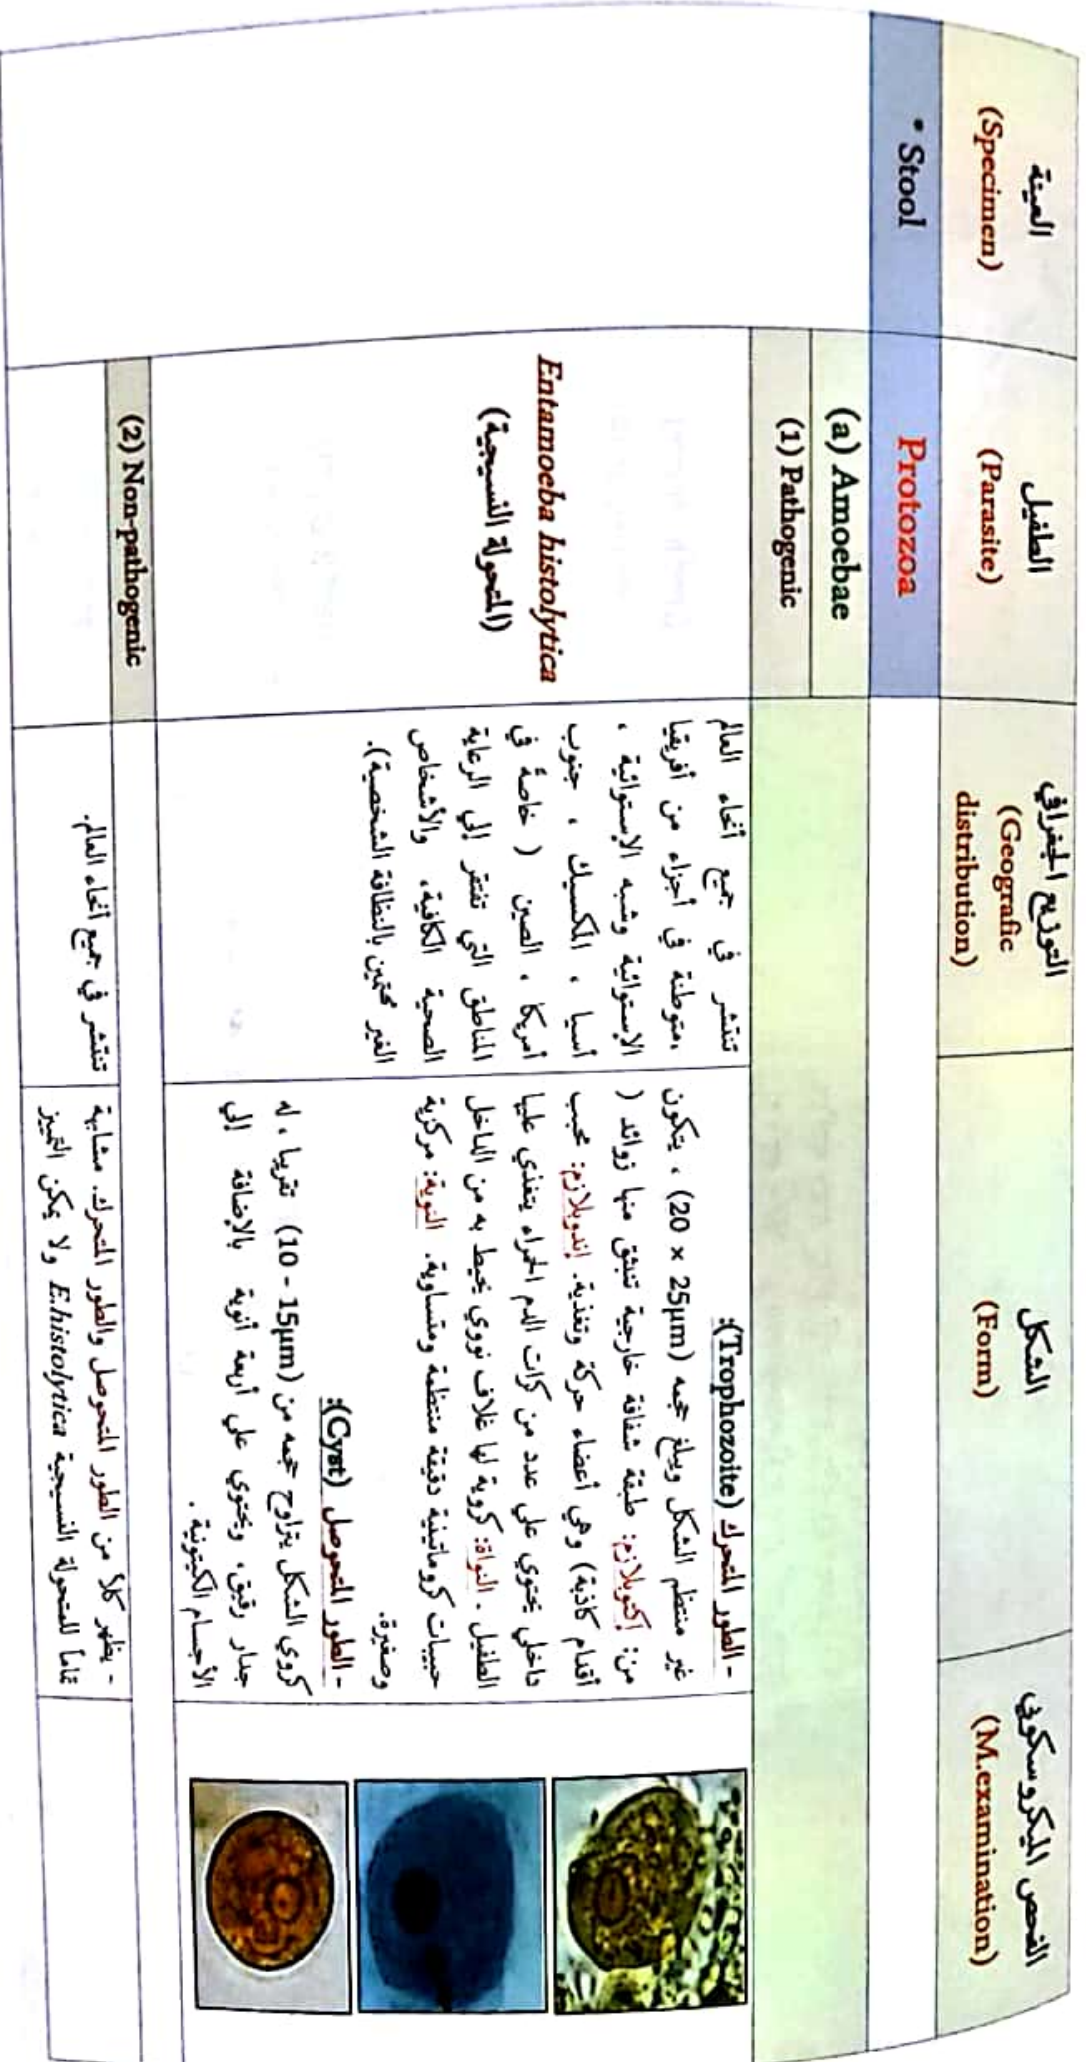 العينة
(Specimen)
الطفيل
(Parasite)
التوزيع الجغرافي
(Geografic
distribution)
الشكل
(Form)
الفحص الميكروسكوبي
(M.examination)
• Stool
Protozoa
(a) Amoebae
(1) Pathogenic
Entamoeba histolytica
(المتحولة النسيجية)
تنتشر في جميع أنحاء العالم
،متوطنة في أجزاء من أفريقيا
الإستوائية وشبه الإستوائية ،
أسيا ، المكسيك ، جنوب
أمريكا ، الصين ( خاصةً في
المناطق التي تفتقر إلي الرعاية
الصحية الكافية، والأشخاص
الغير مهتمين بالنظافة الشخصية).
- الطور المتحرك (Trophozoite):
غير منتظم الشكل ويبلغ حجمه (20 x 25µm) ، يتكون
من: إكتوبلازم: طبقة شفافة خارجية تنبثق منها زوائد (
أقدام كاذبة) وهي أعضاء حركة وتغذية. إندوبلازم: محبب
داخلي يحتوي علي عدد من كرات الدم الحمراء يتغذي عليا
الطفيل . النواة: كروية لها غلاف نووي يحيط به من الداخل
حبيبات كروماتينية دقيقة منتظمة ومتساوية. النوية: مركزية
وصغيرة.
- الطور المتحوصل (Cyst):
كروي الشكل يتراوح حجمه من (10 - 15µm) تقريبا ، له
جدار رقيق، ويحتوي علي أربعة أنوية بالإضافة إلي
الأجسام الكيتونية .
(2) Non-pathogenic
تنتشر في جميع أنحاء العالم.
- يظهر كلاً من الطور المتحوصل والطور المتحرك. مشابهة
تماماً للمتحولة النسيجية E.histolytica ولا يمكن التمييز